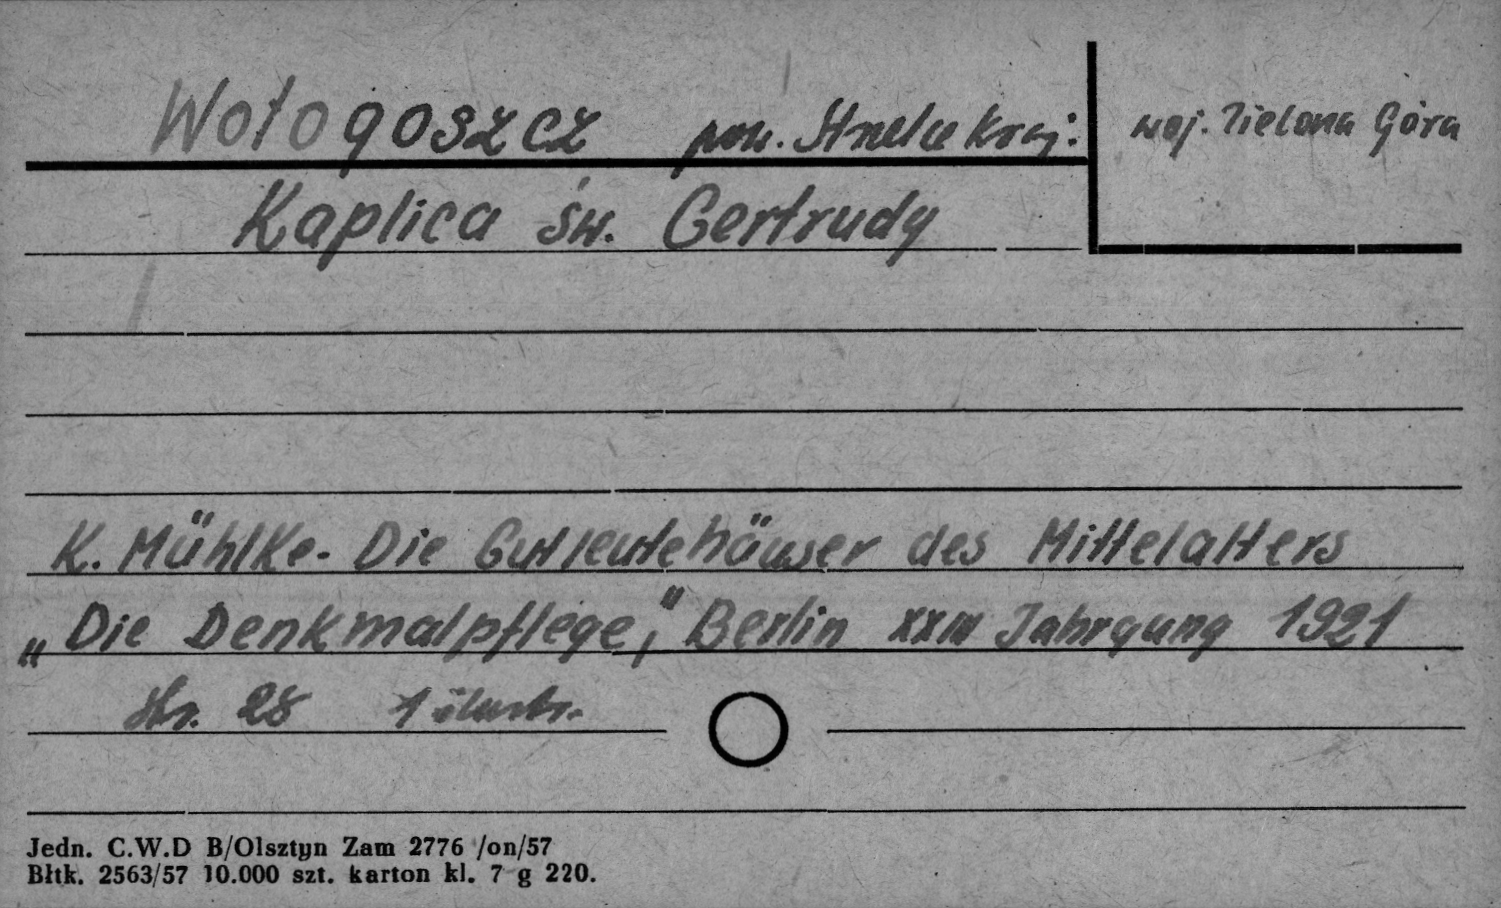 Wołogoszcz pow. Strzelce Kraj: woj. Zielona Góra
Kaplica św. Gertrudy
K. Mühlke- Die Gutleutehäuser des Mittelalters
„Die Denkmalpflege," Berlin XXIII Jahrgang 1921
str. 28 1 ilustr.
Jedn. C.W.D B/Olsztyn Zam 2776 /on/57
Błtk. 2563/57 10.000 szt. karton kl. 7 g 220.